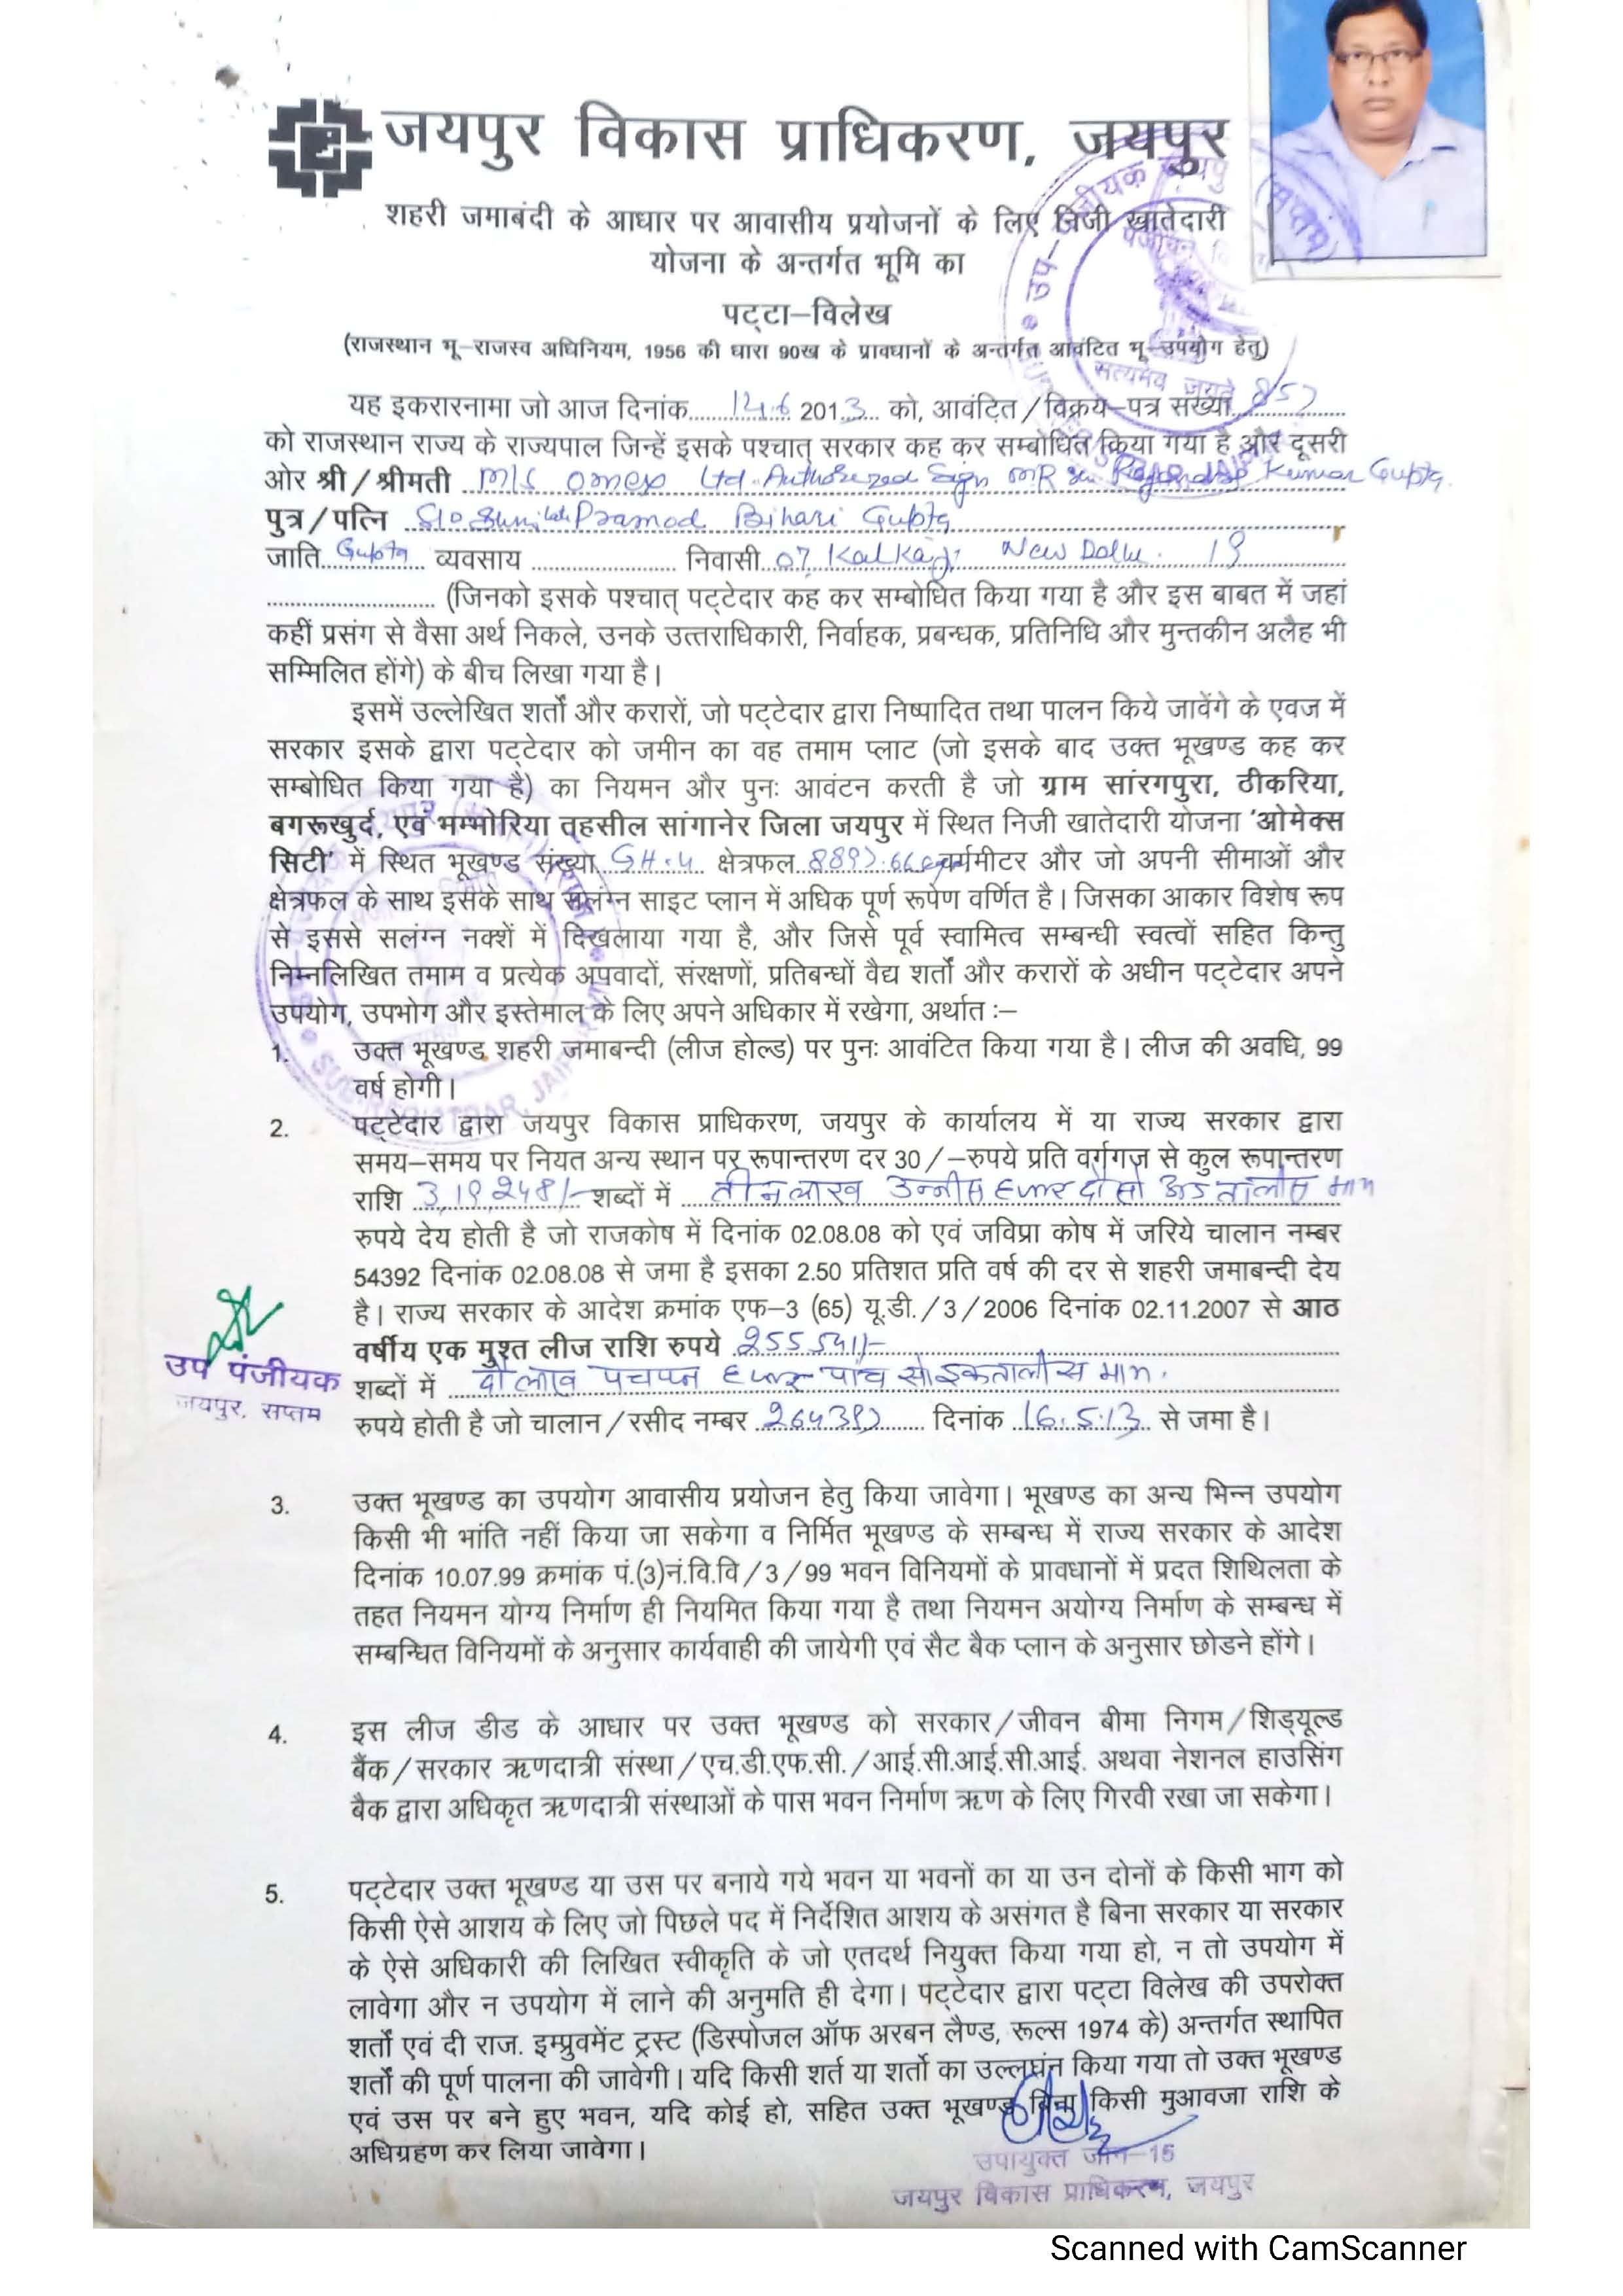 जयपुर विकास प्राधिकरण, जयपुर
शहरी जमाबंदी के आधार पर आवासीय प्रयोजनों के लिए निजी खातेदारी
योजना के अन्तर्गत भूमि का
पट्टा–विलेख
(राजस्थान भू–राजस्व अधिनियम, 1956 की धारा 90ख के प्रावधानों के अन्तर्गत आवंटित भू–उपयोग हेतु)
सत्यमेव जयते
यह इकरारनामा जो आज दिनांक 14.6 2013 को, आवंटित/विक्रय–पत्र संख्या 857
को राजस्थान राज्य के राज्यपाल जिन्हें इसके पश्चात् सरकार कह कर सम्बोधित किया गया है और दूसरी
ओर श्री/श्रीमती M/s Omex Ltd. Authorezed Sign MR Kumar Gupta
पुत्र/पत्नि S/o Pramod Bihari Gupta
जाति Gupta व्यवसाय .................... निवासी 07, Kalkaji New Delhi. 19
(जिनको इसके पश्चात् पट्टेदार कह कर सम्बोधित किया गया है और इस बाबत में जहां
कहीं प्रसंग से वैसा अर्थ निकले, उनके उत्तराधिकारी, निर्वाहक, प्रबन्धक, प्रतिनिधि और मुन्तकीन अलैह भी
सम्मिलित होंगे) के बीच लिखा गया है।
इसमें उल्लेखित शर्तों और करारों, जो पट्टेदार द्वारा निष्पादित तथा पालन किये जावेंगे के एवज में
सरकार इसके द्वारा पट्टेदार को जमीन का वह तमाम प्लाट (जो इसके बाद उक्त भूखण्ड कह कर
सम्बोधित किया गया है) का नियमन और पुनः आवंटन करती है जो ग्राम सांरगपुरा, ठीकरिया,
बगरूखुर्द, एवं भम्भोरिया तहसील सांगानेर जिला जयपुर में स्थित निजी खातेदारी योजना 'ओमेक्स
सिटी' में स्थित भूखण्ड संख्या GH-4 क्षेत्रफल 8897.66 वर्गमीटर और जो अपनी सीमाओं और
क्षेत्रफल के साथ इसके साथ सलंग्न साइट प्लान में अधिक पूर्ण रूपेण वर्णित है। जिसका आकार विशेष रूप
से इससे सलंग्न नक्शें में दिखलाया गया है, और जिसे पूर्व स्वामित्व सम्बन्धी स्वत्वों सहित किन्तु
निम्नलिखित तमाम व प्रत्येक अपवादों, संरक्षणों, प्रतिबन्धों वैद्य शर्तों और करारों के अधीन पट्टेदार अपने
उपयोग, उपभोग और इस्तेमाल के लिए अपने अधिकार में रखेगा, अर्थात :–
1. उक्त भूखण्ड शहरी जमाबन्दी (लीज होल्ड) पर पुनः आवंटित किया गया है। लीज की अवधि, 99
वर्ष होगी।
2. पट्टेदार द्वारा जयपुर विकास प्राधिकरण, जयपुर के कार्यालय में या राज्य सरकार द्वारा
समय–समय पर नियत अन्य स्थान पर रूपान्तरण दर 30/–रुपये प्रति वर्गगज से कुल रूपान्तरण
राशि 3,19,248/– शब्दों में तीन लाख उन्नीस हजार दो सो अडतालीस मात्र
रुपये देय होती है जो राजकोष में दिनांक 02.08.08 को एवं जविप्रा कोष में जरिये चालान नम्बर
54392 दिनांक 02.08.08 से जमा है इसका 2.50 प्रतिशत प्रति वर्ष की दर से शहरी जमाबन्दी देय
है। राज्य सरकार के आदेश क्रमांक एफ–3 (65) यू.डी./3/2006 दिनांक 02.11.2007 से आठ
वर्षीय एक मुश्त लीज राशि रुपये 255541/-
उप पंजीयक
जयपुर, सप्तम
शब्दों में दो लाख पचपन हजार पांच सो इकतालीस मात्र.
रुपये होती है जो चालान/रसीद नम्बर 264397 दिनांक 16.5.13 से जमा है।
3. उक्त भूखण्ड का उपयोग आवासीय प्रयोजन हेतु किया जावेगा। भूखण्ड का अन्य भिन्न उपयोग
किसी भी भांति नहीं किया जा सकेगा व निर्मित भूखण्ड के सम्बन्ध में राज्य सरकार के आदेश
दिनांक 10.07.99 क्रमांक पं.(3)नं.वि.वि/3/99 भवन विनियमों के प्रावधानों में प्रदत शिथिलता के
तहत नियमन योग्य निर्माण ही नियमित किया गया है तथा नियमन अयोग्य निर्माण के सम्बन्ध में
सम्बन्धित विनियमों के अनुसार कार्यवाही की जायेगी एवं सैट बैक प्लान के अनुसार छोडने होंगे।
4. इस लीज डीड के आधार पर उक्त भूखण्ड को सरकार/जीवन बीमा निगम/शिड्यूल्ड
बैंक/सरकार ऋणदात्री संस्था/एच.डी.एफ.सी./आई.सी.आई.सी.आई. अथवा नेशनल हाउसिंग
बैक द्वारा अधिकृत ऋणदात्री संस्थाओं के पास भवन निर्माण ऋण के लिए गिरवी रखा जा सकेगा।
5. पट्टेदार उक्त भूखण्ड या उस पर बनाये गये भवन या भवनों का या उन दोनों के किसी भाग को
किसी ऐसे आशय के लिए जो पिछले पद में निर्देशित आशय के असंगत है बिना सरकार या सरकार
के ऐसे अधिकारी की लिखित स्वीकृति के जो एतदर्थ नियुक्त किया गया हो, न तो उपयोग में
लावेगा और न उपयोग में लाने की अनुमति ही देगा। पट्टेदार द्वारा पट्टा विलेख की उपरोक्त
शर्तों एवं दी राज. इम्प्रुवमेंट ट्रस्ट (डिस्पोजल ऑफ अरबन लैण्ड, रूल्स 1974 के) अन्तर्गत स्थापित
शर्तों की पूर्ण पालना की जावेगी। यदि किसी शर्त या शर्तो का उल्लघंन किया गया तो उक्त भूखण्ड
एवं उस पर बने हुए भवन, यदि कोई हो, सहित उक्त भूखण्ड बिना किसी मुआवजा राशि के
अधिग्रहण कर लिया जावेगा।
उपायुक्त जोन–15
जयपुर विकास प्राधिकरण, जयपुर
Scanned with CamScanner